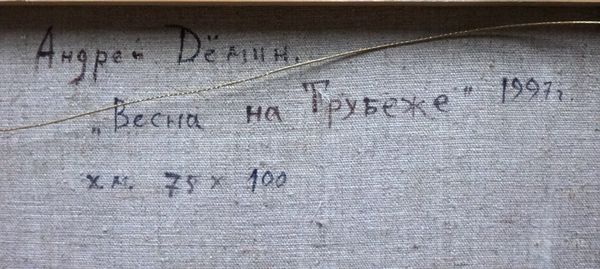 Андрей Дёмин.
„Весна на Трубеже" 1997г.
х.м. 75 х 100